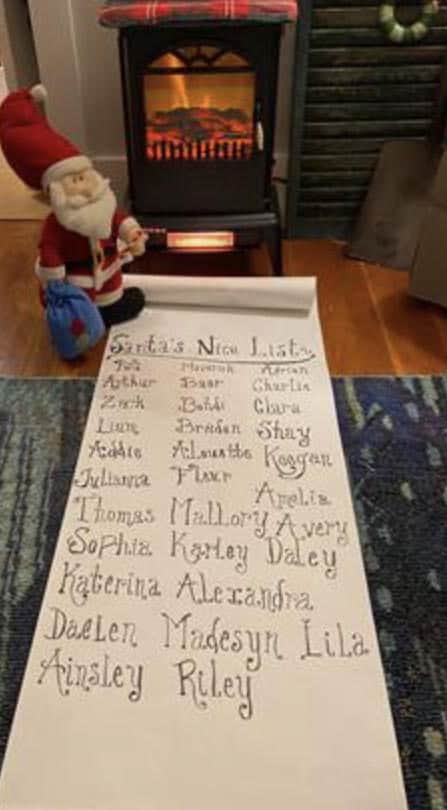 Santa's Nice List
Adrian
Arthur Bear Charlie
Zack Bodhi Clara
Liam Braden Shay
Addie Alouette Keegan
Julianna Fleur
Amelia
Thomas Mallory Avery
Sophia Karley Daley
Katerina Alexandra
Daelen Madesyn Lila
Ainsley Riley